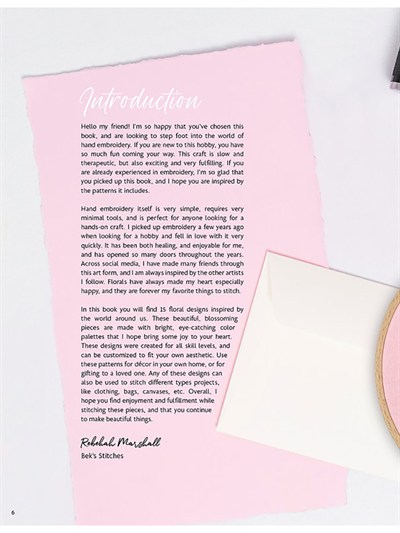 Introduction
Hello my friend! I'm so happy that you've chosen this
book, and are looking to step foot into the world of
hand embroidery. If you are new to this hobby, you have
so much fun coming your way. This craft is slow and
therapeutic, but also exciting and very fulfilling. If you
are already experienced in embroidery, I'm so glad that
you picked up this book, and I hope you are inspired by
the patterns it includes.
Hand embroidery itself is very simple, requires very
minimal tools, and is perfect for anyone looking for a
hands-on craft. I picked up embroidery a few years ago
when looking for a hobby and fell in love with it very
quickly. It has been both healing, and enjoyable for me,
and has opened so many doors throughout the years.
Across social media, I have made many friends through
this art form, and I am always inspired by the other artists
I follow. Florals have always made my heart especially
happy, and they are forever my favorite things to stitch.
In this book you will find 15 floral designs inspired by
the world around us. These beautiful, blossoming
pieces are made with bright, eye-catching color
palettes that I hope bring some joy to your heart.
These designs were created for all skill levels, and
can be customized to fit your own aesthetic. Use
these patterns for décor in your own home, or for
gifting to a loved one. Any of these designs can
also be used to stitch different types projects,
like clothing, bags, canvases, etc. Overall, I
hope you find enjoyment and fulfillment while
stitching these pieces, and that you continue
to make beautiful things.
Rebekah Marshall
Bek's Stitches
6